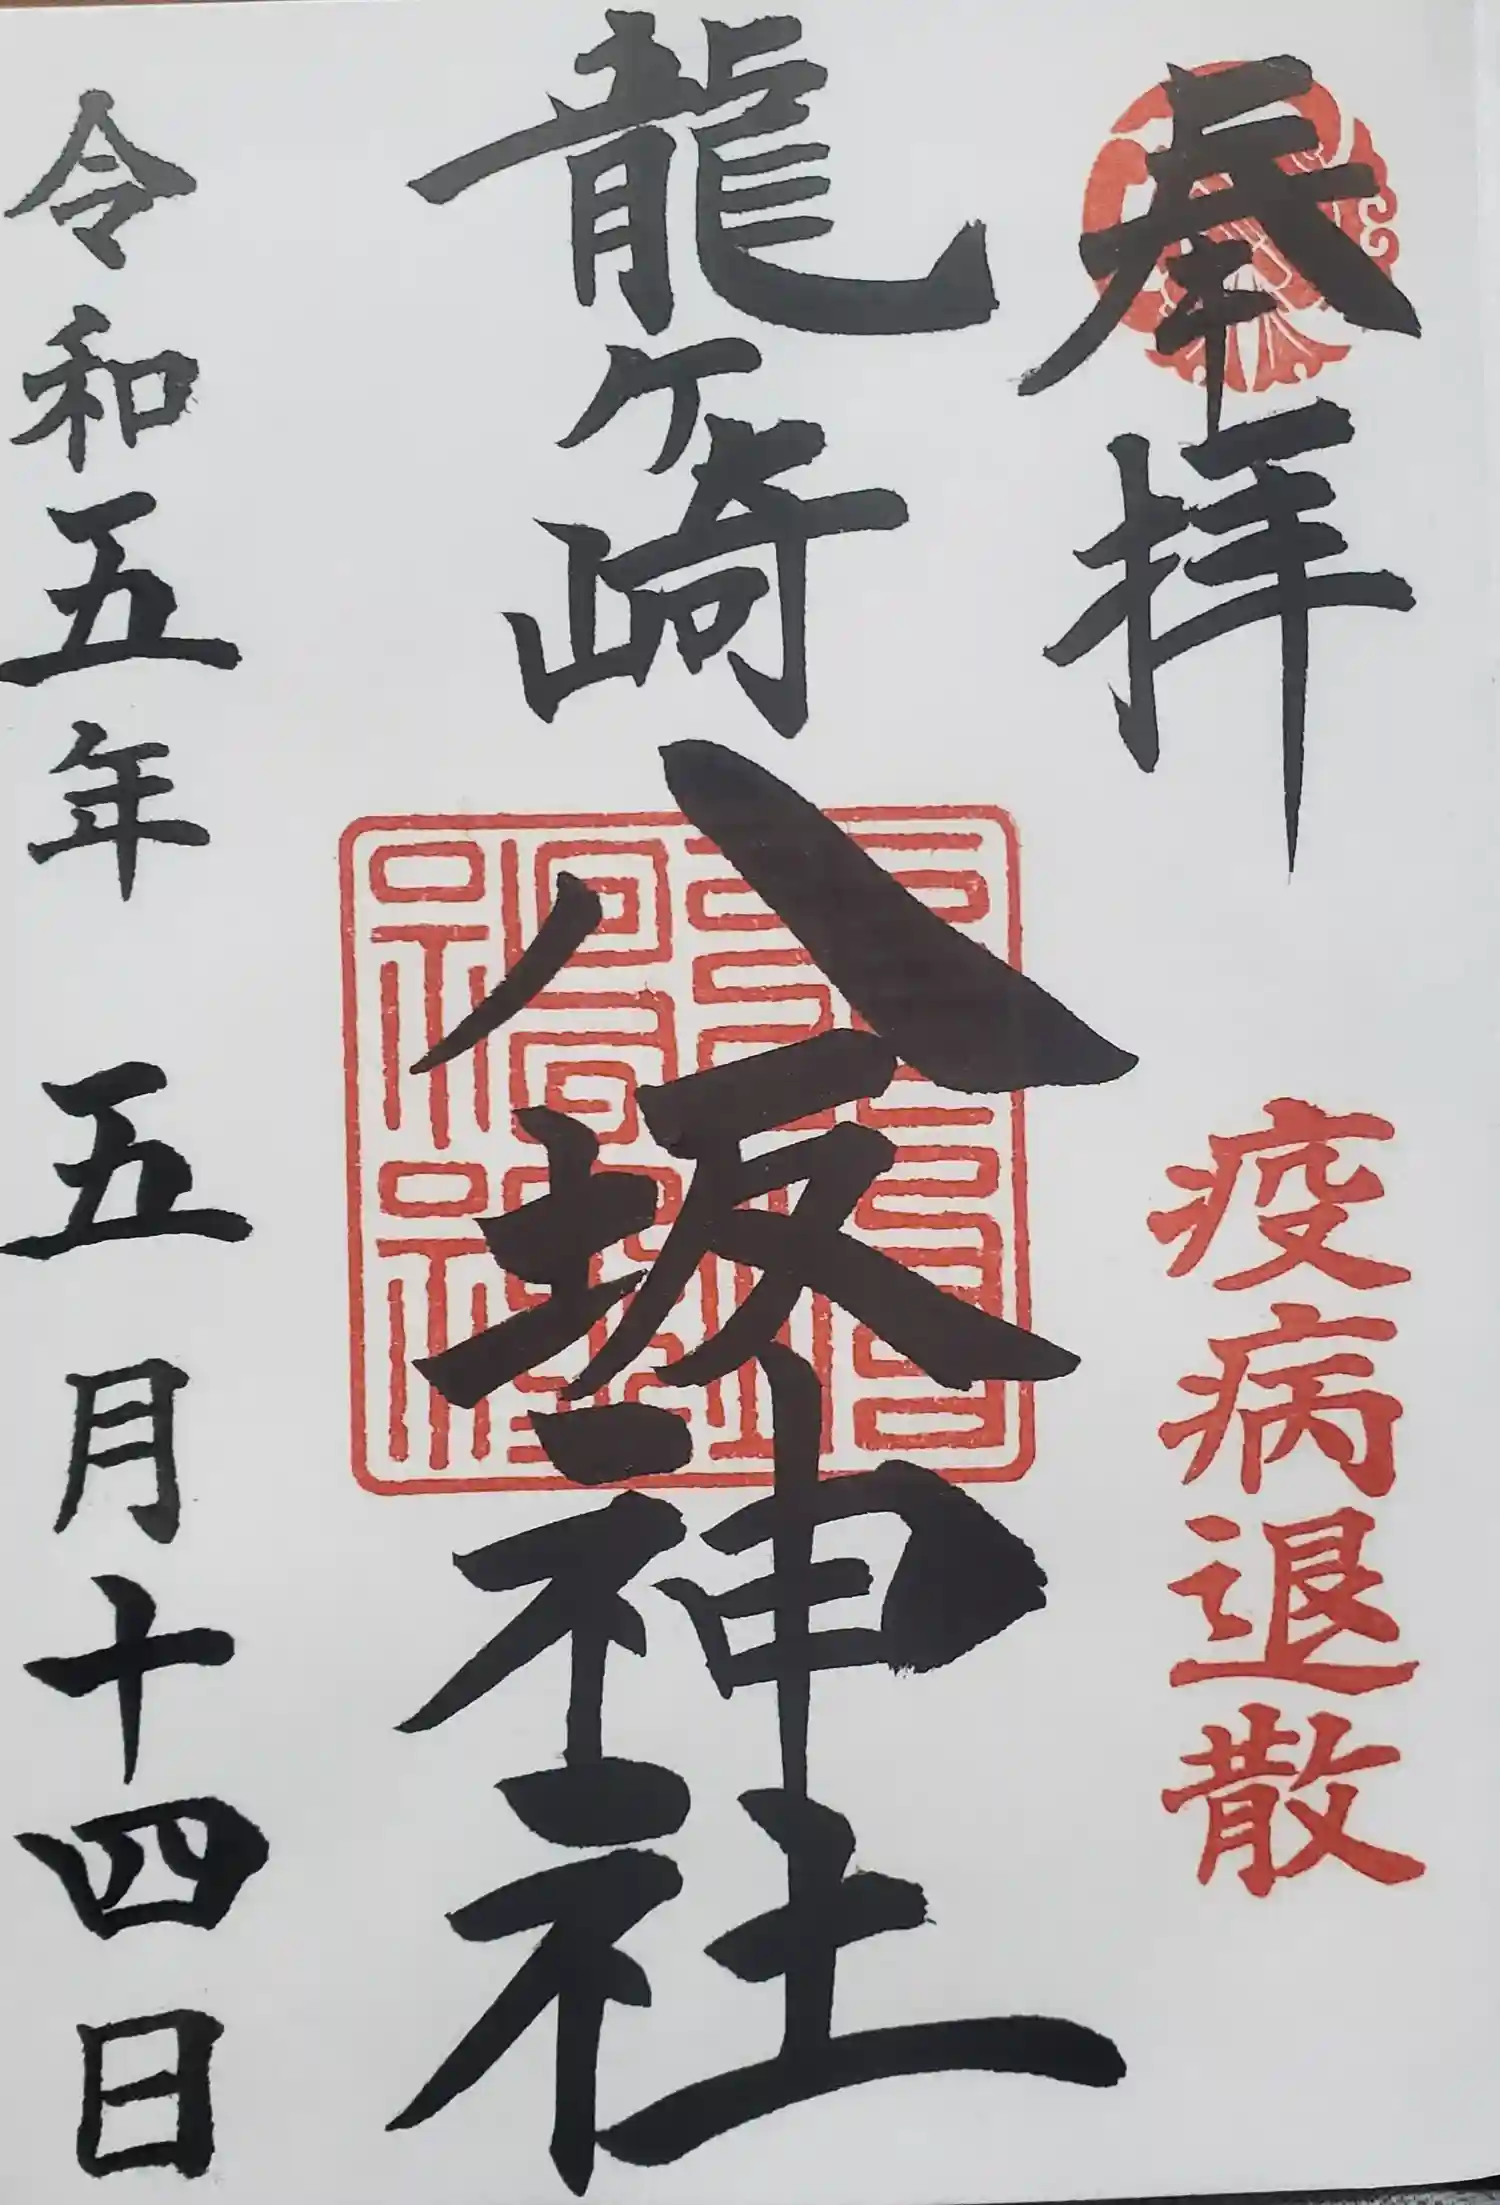 奉拝
疫病退散
龍ケ崎八坂神社
令和五年 五月十四日